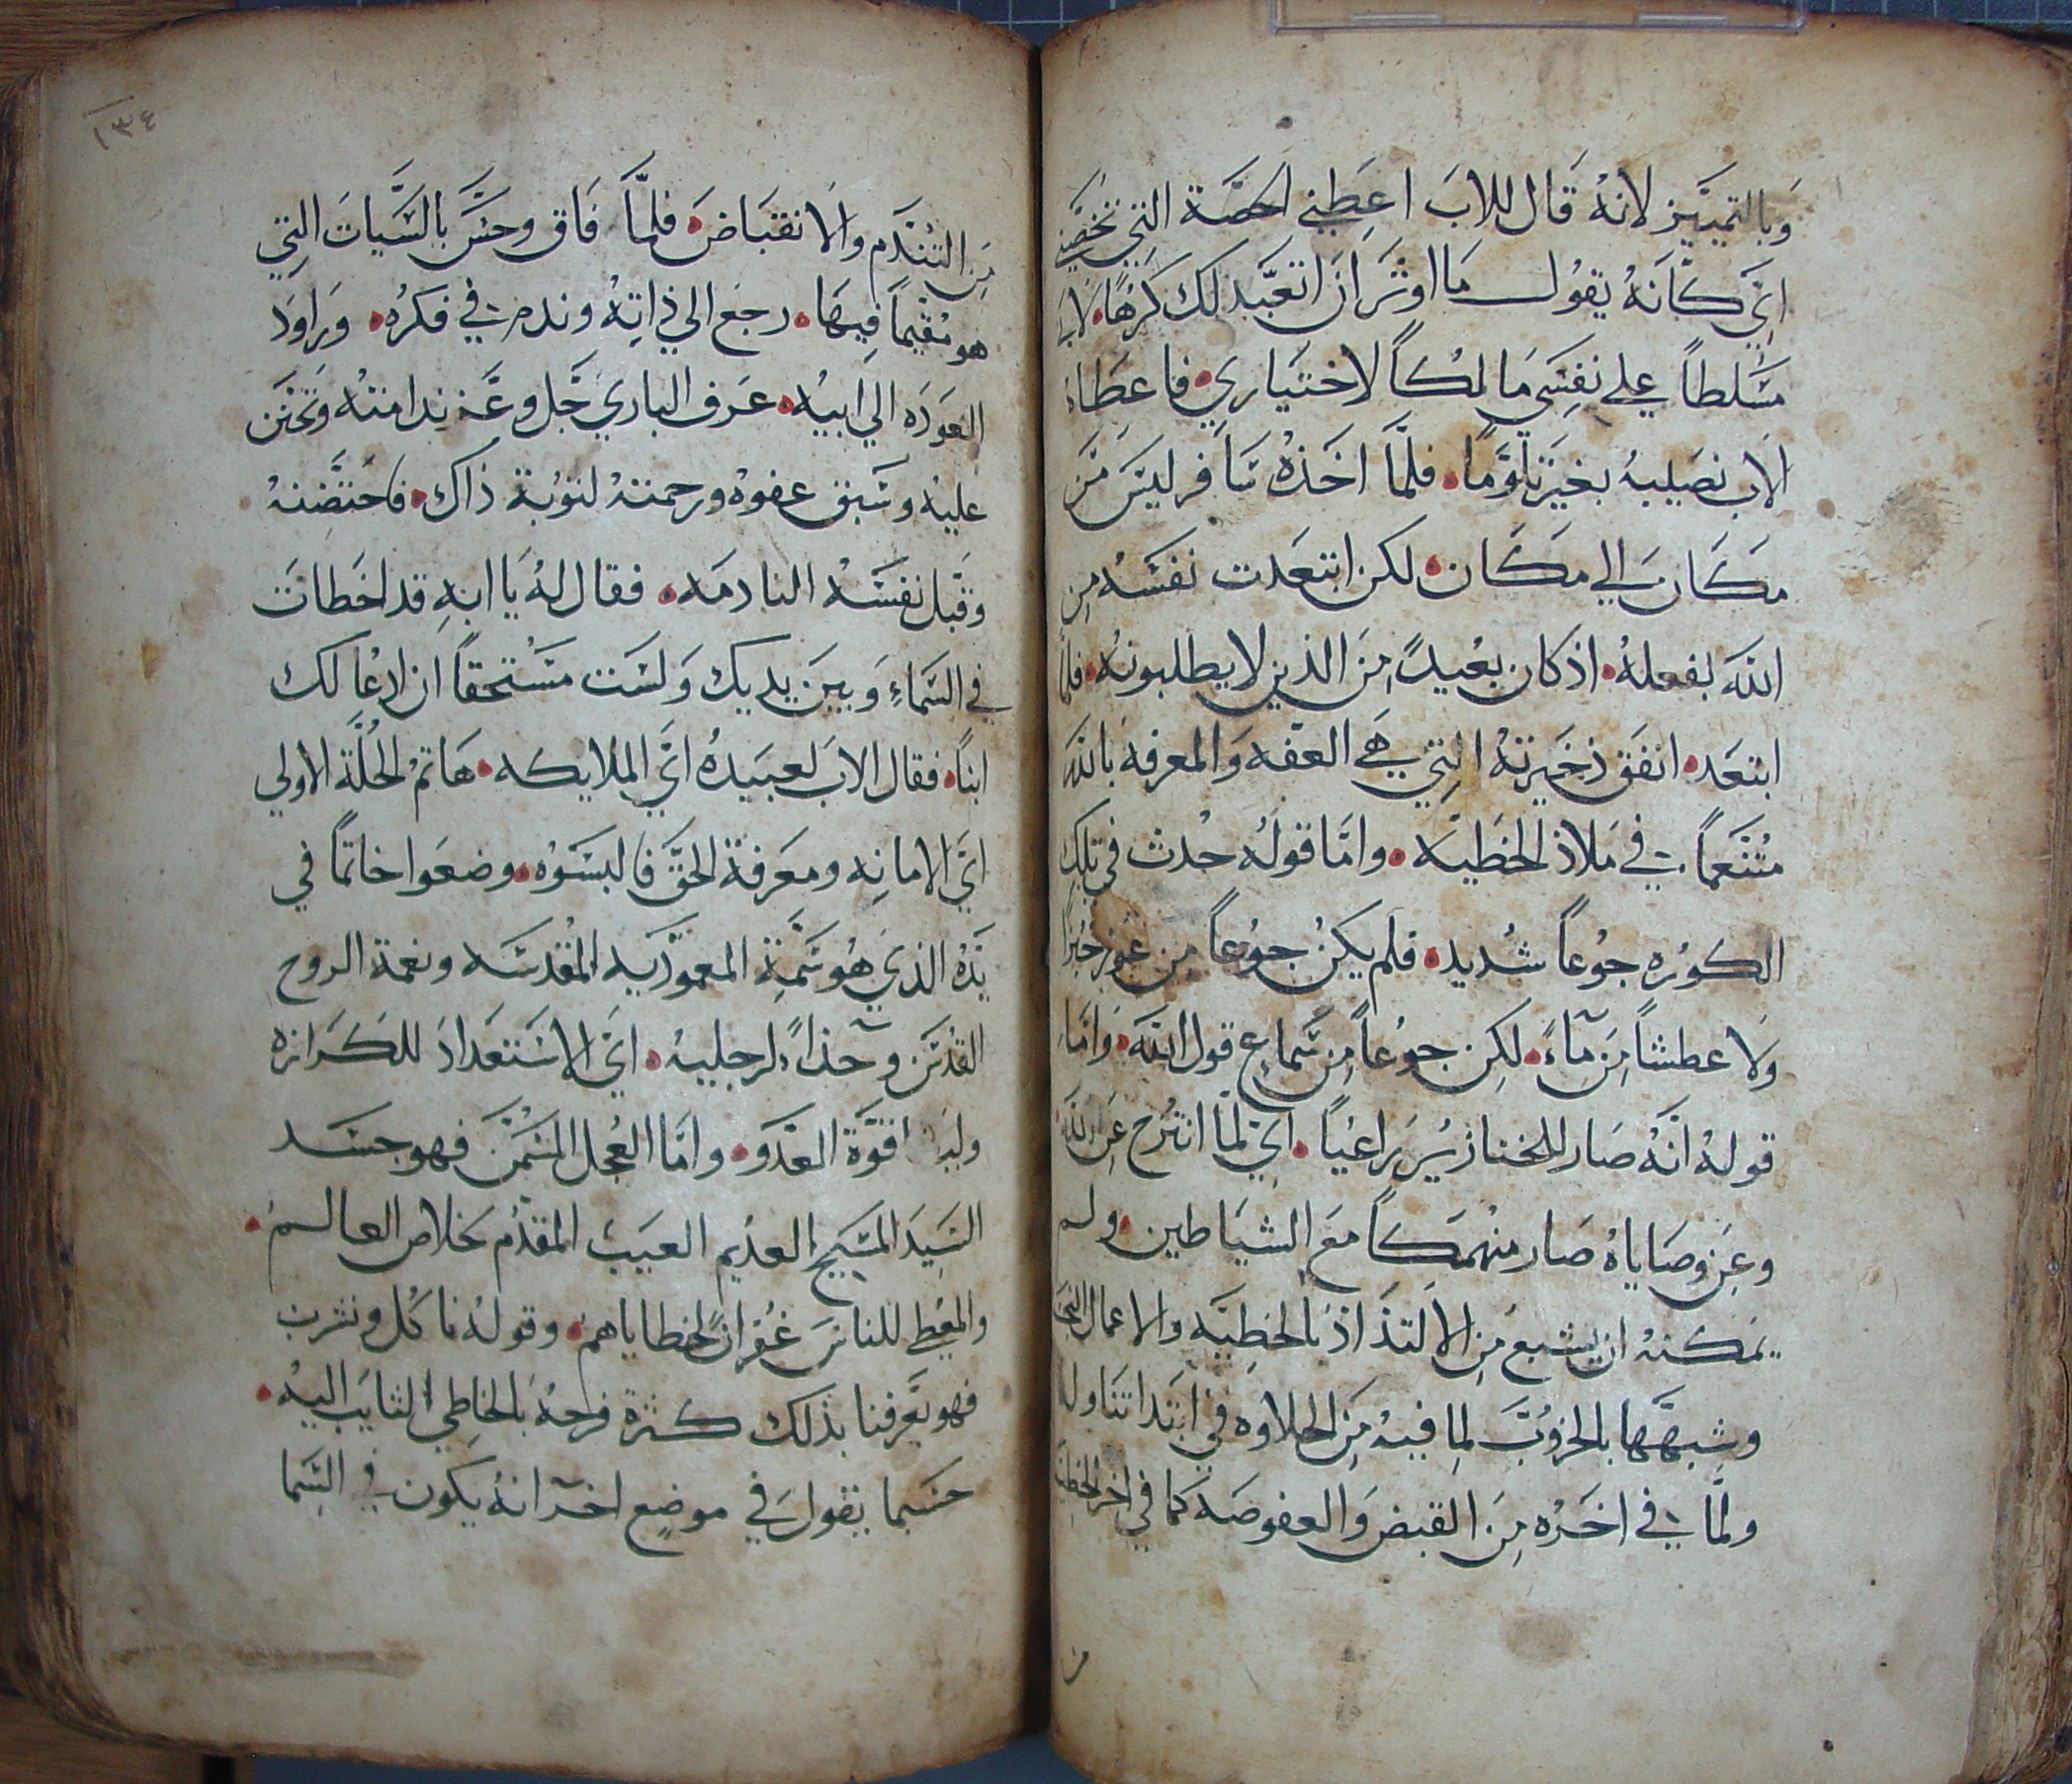 وبالتمييز لانه قال للاب اعطني الحصة التي تخصني
اي كانه يقول ما اوثر ان اتعبد لك كرها لاني
مسلطاً علي نفسي مالكاً لاختياري فاعطاه
الاب نصيبه بغير تلوما فلما اخذه سافر ليس من
مكان الي مكان لكن ابتعدت نفسه من
الله بفعله اذ كان بعيدً من الذين لا يطلبونه فلما
ابتعد انفق ذخيرته التي هي العفه والمعرفه بالله
متنعماً في ملاذ الخطيه واما قوله حدث في تلك
الكوره جوعاً شديد فلم يكن جوعاً من عوز خبزاً
ولا عطشاً من مآءً لكن جوعاً من سماع قول الله واما
قوله انه صار للخنازير راعياً اي لما انتزح عن الله
وعن وصاياه صار منهمكاً مع الشياطين ولم
يمكنه ان يشبع من الالتذاذ بالخطيه والاعمال
وشبهها بالخروب لما فيه من الحلاوه في ابتدا تناوله
ولما في اخره من القبض والعفوصه كما في اخر الخطيه
من
١٣٤
من التندم والانقباض فلما فاق وحس بالسيات التي
هو مقيماً فيها رجع الي ذاته وندم في فكره وراود
العوده الي ابيه عرف الباري جل وعز ندامته وتحنن
عليه وسبق عفوه ورحمته لتوبة ذاك فاحتضنه
وقبل نفسه النادمه فقال له يا ابه قد اخطات
في السماء وبين يديك ولست مستحقاً ان ادعا لك
ابناً فقال الاب لعبيده اي الملايكه هاتم الحلة الاولي
اي الامانه ومعرفة الحق فالبسوه وضعوا خاتماً في
يده الذي هو سمة المعموديه المقدسه ونعمة الروح
القدس وحذآءً لرجليه اي الاستعداد للكرازه
قوة العدو واما العجل المسمن فهو جسد
السيد المسيح العديم العيب المقدم بخلاص العالم
والمعطي للناس غفرانً لخطاياهم وقوله ناكل ونشرب
فهو يعرفنا بذلك كثرة فرحه بالخاطي التايب اليه
حسبما يقول في موضع اخر انه يكون في السما